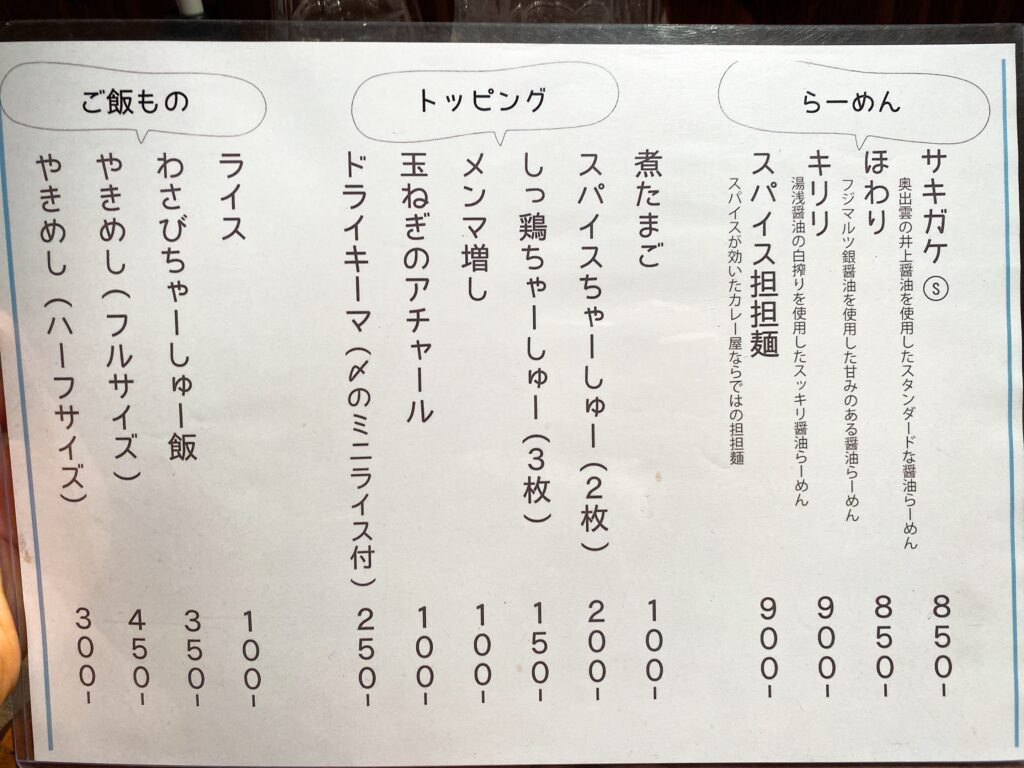 らーめん
サキガケ Ⓢ 850-
奥出雲の井上醤油を使用したスタンダードな醤油らーめん
ほわり 850-
フジマルツ銀醤油を使用した甘みのある醤油らーめん
キリリ 900-
湯浅醤油の白搾りを使用したスッキリ醤油らーめん
スパイス担担麺 900-
スパイスが効いたカレー屋ならではの担担麺
トッピング
煮たまご 100-
スパイスちゃーしゅー(2枚) 200-
しっ鶏ちゃーしゅー(3枚) 150-
メンマ増し 100-
玉ねぎのアチャール 100-
ドライキーマ(〆のミニライス付) 250-
ご飯もの
ライス 100-
わさびちゃーしゅー飯 350-
やきめし(フルサイズ) 450-
やきめし(ハーフサイズ) 300-